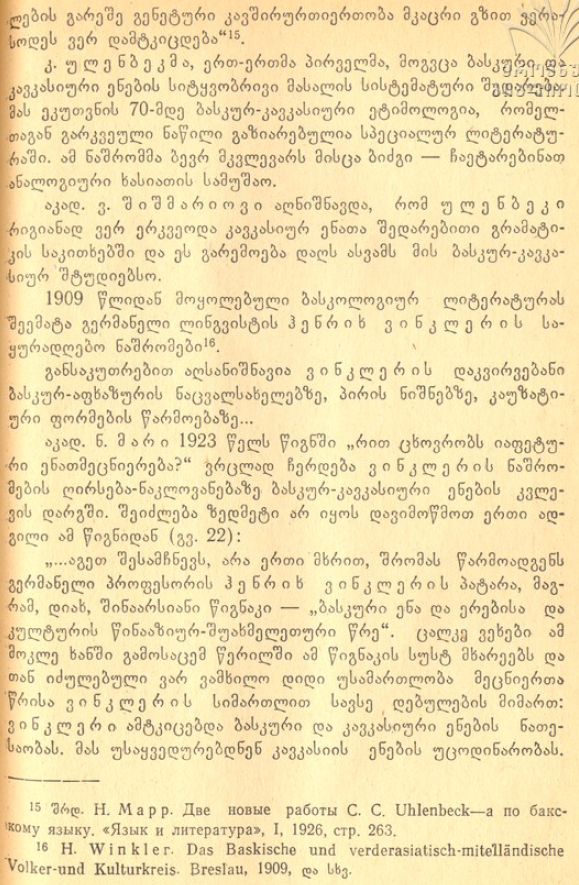 ლების გარეშე გენეტური კავშირურთიერთობა მკაცრი გზით ვერა-
სოდეს ვერ დამტკიცდება“¹⁵.
კ. ულენბეკმა, ერთ-ერთმა პირველმა, მოგვცა ბასკური და
კავკასიური ენების სიტყვობრივი მასალის სისტემატური შედარება.
მას ეკუთვნის 70-მდე ბასკურ-კავკასიური ეტიმოლოგია, რომელ-
თაგან გარკვეული ნაწილი გაზიარებულია სპეციალურ ლიტერატუ-
რაში. ამ ნაშრომმა ბევრ მკვლევარს მისცა ბიძგი — ჩაეტარებინათ
ანალოგიური ხასიათის სამუშაო.
აკად. ვ. შიშმარიოვი აღნიშნავდა, რომ ულენბეკი
რიგიანად ვერ ერკვეოდა კავკასიურ ენათა შედარებითი გრამატი-
კის საკითხებში და ეს გარემოება დაღს ასვამს მის ბასკურ-კავკა-
სიურ შტუდიებსო.
1909 წლიდან მოყოლებული ბასკოლოგიურ ლიტერატურას
შეემატა გერმანელი ლინგვისტის ჰენრიხ ვინკლერის სა-
ყურადღებო ნაშრომები¹⁶.
განსაკუთრებით აღსანიშნავია ვინკლერის დაკვირვებანი
ბასკურ-აფხაზურის ნაცვალსახელებზე, პირის ნიშნებზე, კაუზატი-
ური ფორმების წარმოებაზე...
აკად. ნ. მარი 1923 წელს წიგნში „რით ცხოვრობს იაფეტუ-
რი ენათმეცნიერება?“ ვრცლად ჩერდება ვინკლერის ნაშრო-
მების ღირსება-ნაკლოვანებაზე ბასკურ-კავკასიური ენების კვლე-
ვის დარგში. შეიძლება ზედმეტი არ იყოს დავიმოწმოთ ერთი ად-
გილი ამ წიგნიდან (გვ. 22):
„...აგეთ შესამჩნევს, არა ერთი მხრით, შრომას წარმოადგენს
გერმანელი პროფესორის ჰენრიხ ვინკლერის პატარა, მაგ-
რამ, დიახ, შინაარსიანი წიგნაკი — „ბასკური ენა და ერებისა და
კულტურის წინააზიურ-შუახმელეთური წრე“. ცალკე ვეხები ამ
მოკლე ხანში გამოსაცემ წერილში ამ წიგნაკის სუსტ მხარეებს და
თან იძულებული ვარ ვამხილო დიდი უსამართლობა მეცნიერთა
წრისა ვინკლერის სიმართლით სავსე დებულების მიმართ:
ვინკლერი ამტკიცებდა ბასკური და კავკასიური ენების ნათე-
საობას. მას უსაყვედურებდნენ კავკასიის ენების უცოდინარობას.
¹⁵ შრდ. Н. Марр. Две новые работы С. С. Uhlenbeck—а по бакс-
кому языку. «Язык и литература», I, 1926, стр. 263.
¹⁶ H. Winkler. Das Baskische und verderasiatisch-mitelländische
Volker-und Kulturkreis. Breslau, 1909, და სხვ.